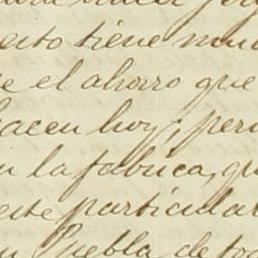 esto tiene mu
e el ahorro que
hacen hoy; per
la fabrica, qu
este particular
Puebla, de to